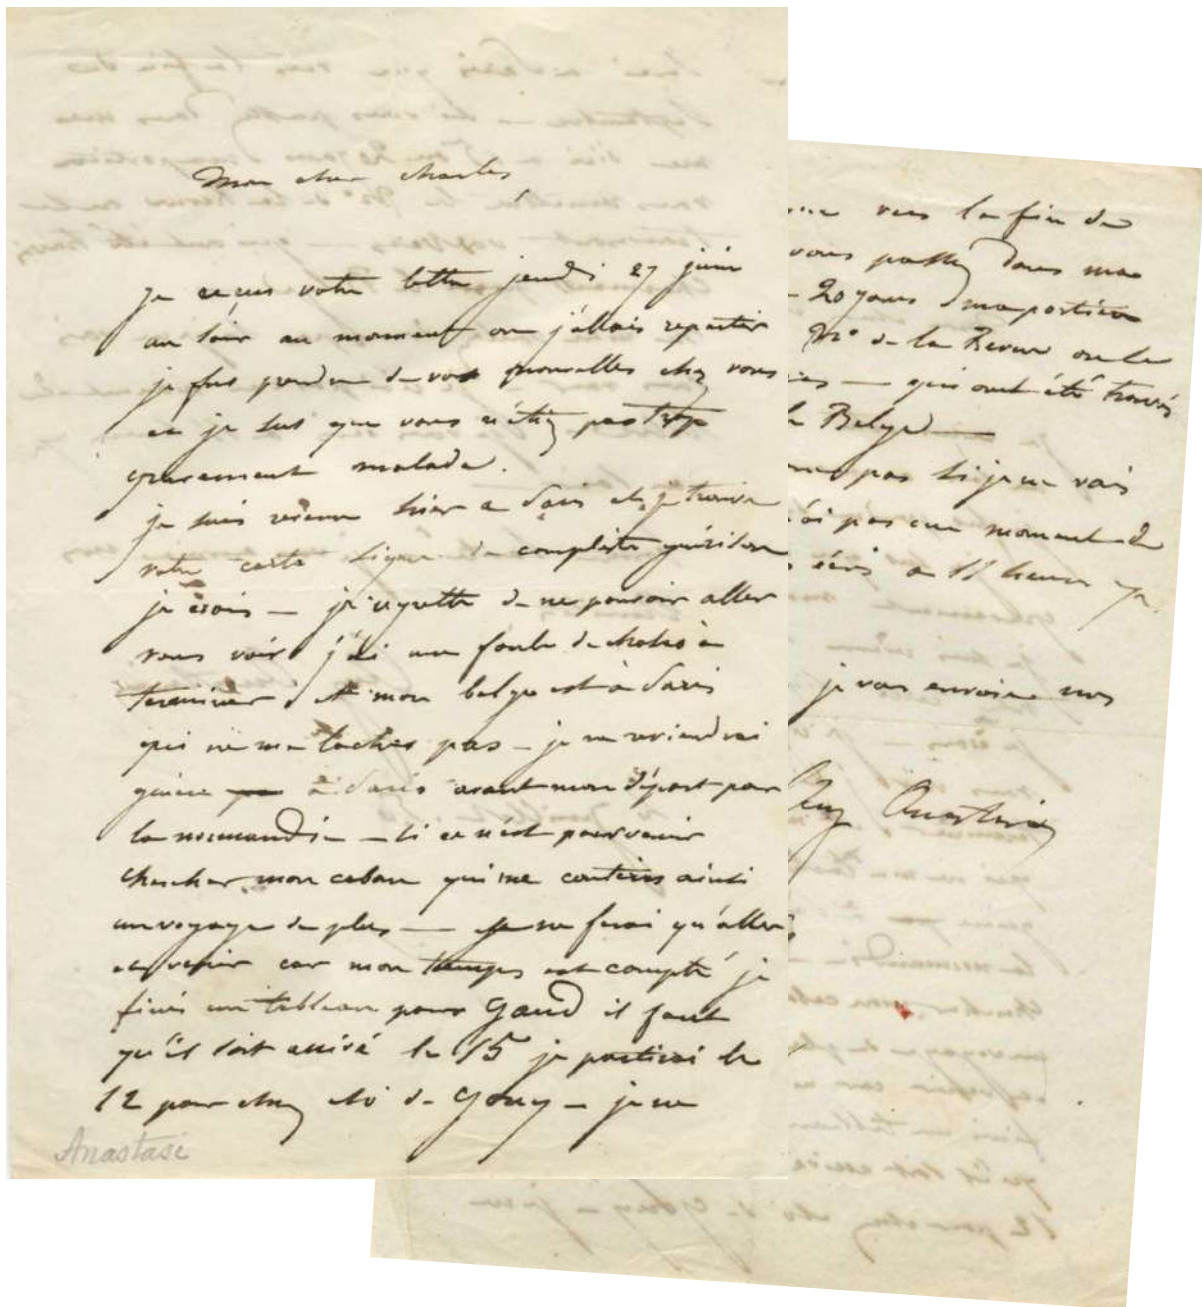 Mon cher Charles
je reçus votre lettre jeudi 27 juin
au soir au moment ou j'allais repartir
je fus prendre de vos nouvelles chez vous
et je sus que vous n'étiez pas trop
gravement malade.
je suis revenu hier a Paris et je trouve
votre carte signe de complète guérison
je crois — je regrette de ne pouvoir aller
vous voir j'ai une foule de choses à
terminer et mon belge est à Paris
qui ne me lache pas — je ne reviendrai
guère à Paris avant mon départ pour
la normandie — si ce n'est pour venir
chercher mon caban qui me coutera ainsi
un voyage de plus — je ne ferai qu'aller
et venir car mon temps est compté je
finis un tableau pour Gand il faut
qu'il soit arrivé le 15 je partirai le
12 pour chez de — je ne
Anastasi
vers la fin de
vous passez dans ma
20 jours ma portière
No de la Revue ou le
— qui ont été trouvés
Belge —
pas si je ne vais
pas un moment de
écris a 11 heures
je vous envoie mes
Anastasi